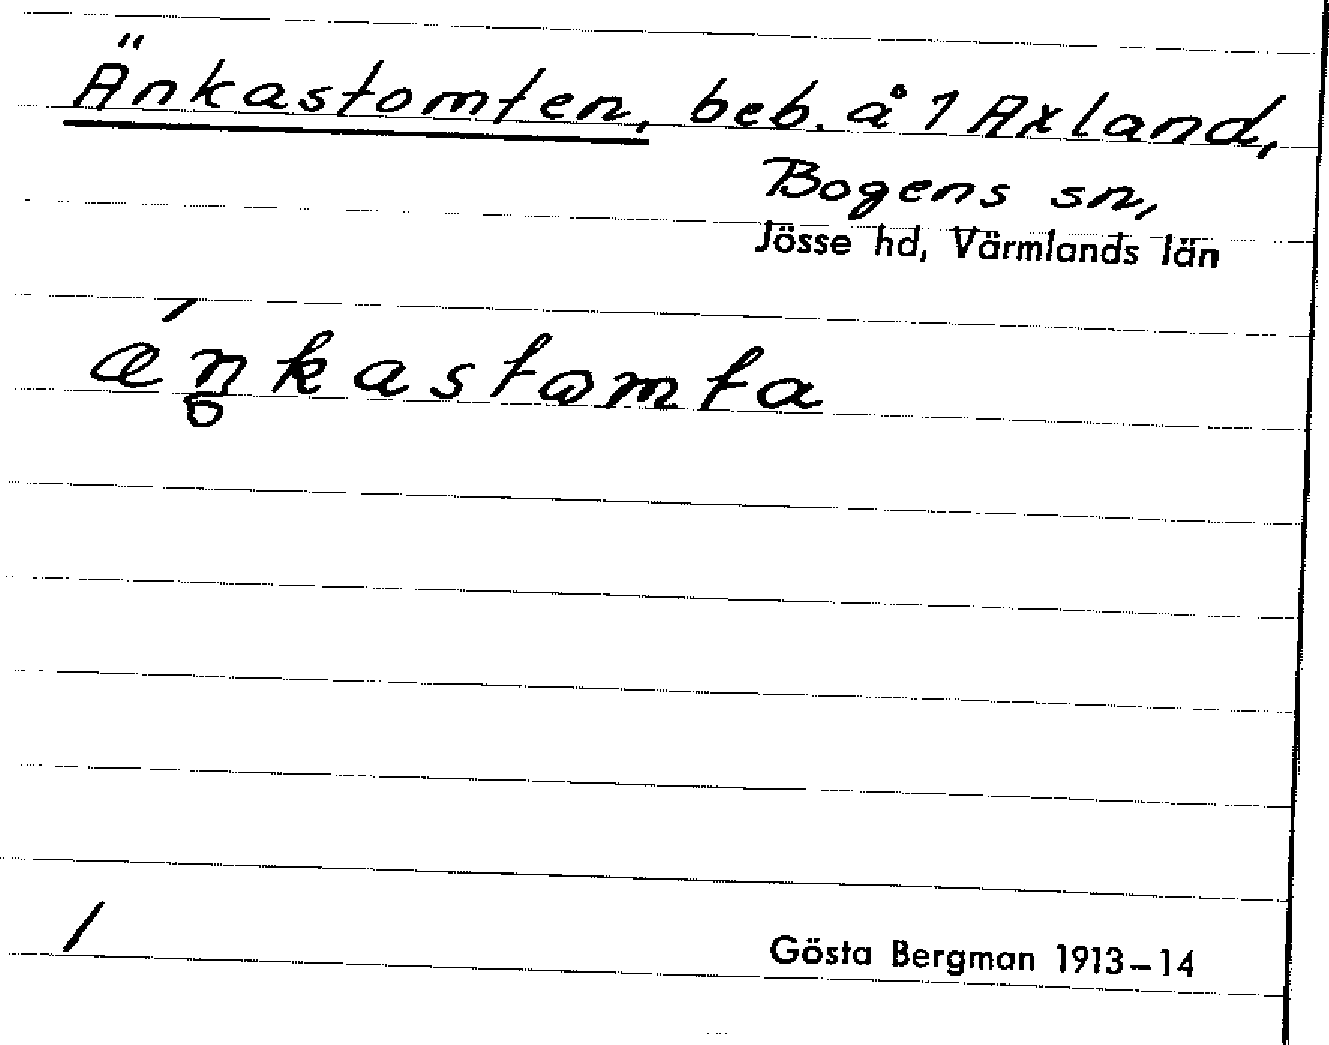 Änkastomten, beb. å 1 Axland,
Bogens sn,
Jösse hd, Värmlands län
ánkastomta
/
Gösta Bergman 1913–14